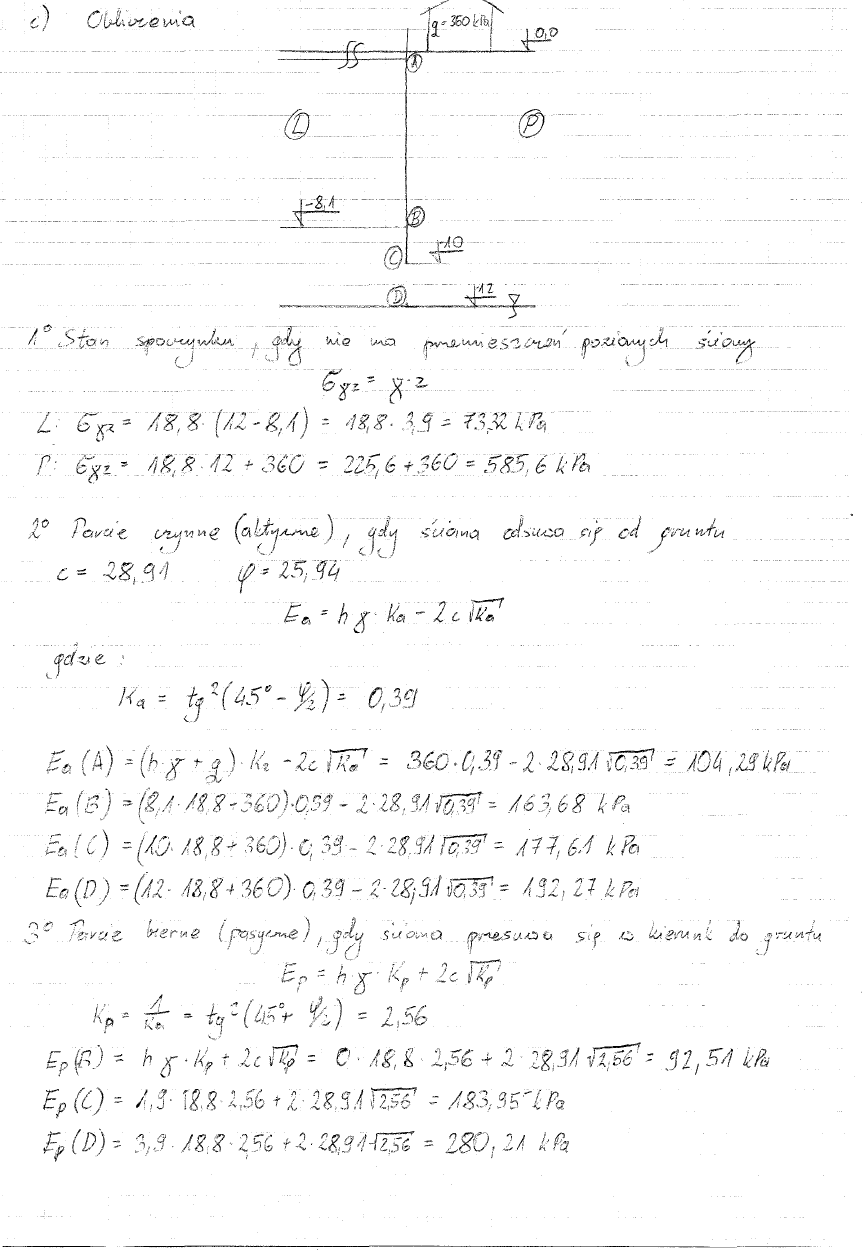 c) Obliczenia
q = 360 kPa
0,0
A
L
P
-8,1
B
C
-10
D
-12
1° Stan spoczynku, gdy nie ma przemieszczeń poziomych ściany
σγz = γ·z
L: σγz = 18,8·(12-8,1) = 18,8·3,9 = 73,32 kPa
P: σγz = 18,8·12 + 360 = 225,6 + 360 = 585,6 kPa
2° Parcie czynne (aktywne), gdy ściana odsuwa się od gruntu
c = 28,91 φ = 25,94
Ea = hγ·Ka - 2c√Ka
gdzie:
Ka = tg²(45° - φ/2) = 0,39
Ea(A) = (h·γ + q)·Kz - 2c√Ka = 360·0,39 - 2·28,91√0,39 = 104,29 kPa
Ea(B) = (8,1·18,8+360)·0,39 - 2·28,91√0,39 = 163,68 kPa
Ea(C) = (10·18,8+360)·0,39 - 2·28,91√0,39 = 177,61 kPa
Ea(D) = (12·18,8+360)·0,39 - 2·28,91√0,39 = 192,27 kPa
3° Parcie bierne (pasywne), gdy ściana przesuwa się w kierunk do gruntu
Ep = hγ·Kp + 2c√Kp
Kp = 1/Ka = tg²(45°+ φ/2) = 2,56
Ep(B) = hγ·Kp + 2c√Kp = 0·18,8·2,56 + 2·28,91√2,56 = 92,51 kPa
Ep(C) = 1,9·18,8·2,56 + 2·28,91√2,56 = 183,95 kPa
Ep(D) = 3,9·18,8·2,56 + 2·28,91√2,56 = 280,21 kPa